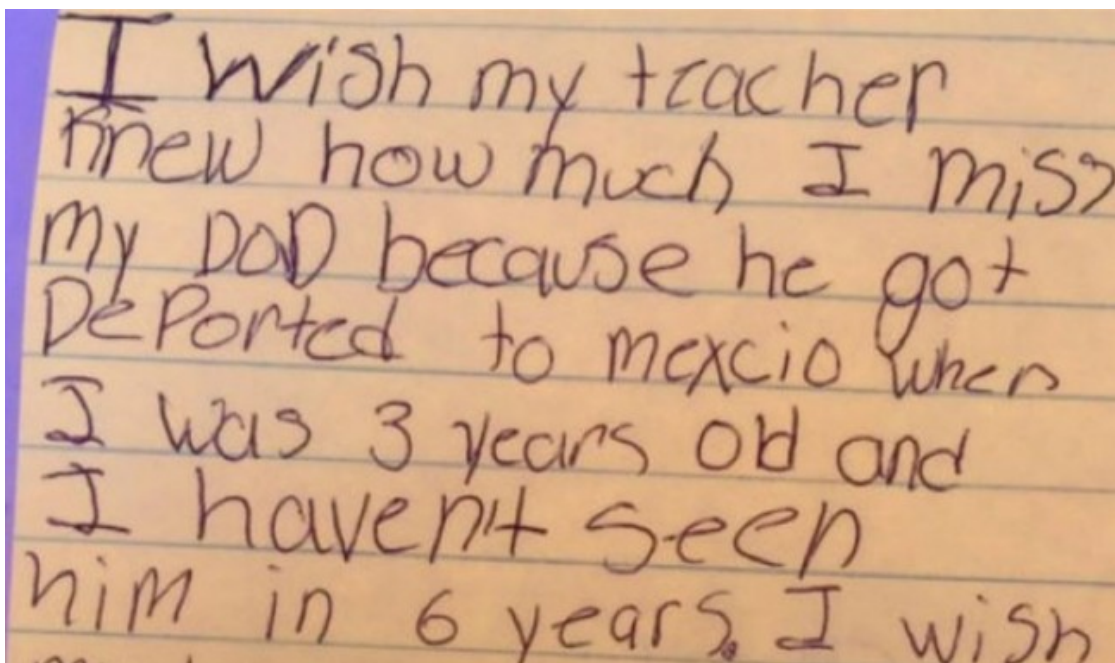 I wish my teacher
knew how much I miss
my DAD because he got
DePorted to mexcio when
I was 3 years old and
I haven't seen
him in 6 years. I wish